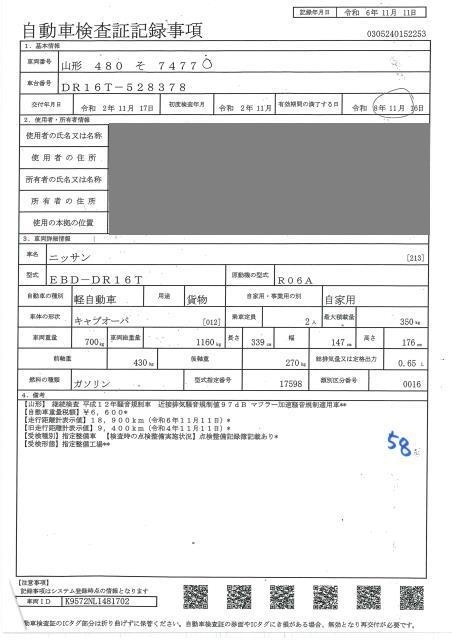 記録年月日 令和 6年11月 11日
自動車検査証記録事項 0305240152253
1. 基本情報
車両番号 山形 480 そ 7477
車台番号 DR16T-528378
交付年月日 令和 2年11月 17日 初度検査年月 令和 2年11月 有効期間の満了する日 令和 8年11月 16日
2. 使用者・所有者情報
使用者の氏名又は名称
使用者の住所
所有者の氏名又は名称
所有者の住所
使用の本拠の位置
3. 車両詳細情報
車名 ニッサン [213]
型式 EBD-DR16T 原動機の型式 R06A
自動車の種別 軽自動車 用途 貨物 自家用・事業用の別 自家用
車体の形状 キャブオーバ [012] 乗車定員 2人 最大積載量 350kg
車両重量 700kg 車両総重量 1160kg 長さ 339cm 幅 147cm 高さ 176cm
前軸重 430kg 後軸重 270kg 総排気量又は定格出力 0.65 L
燃料の種類 ガソリン 型式指定番号 17598 類別区分番号 0016
4. 備考
【山形】 継続検査 平成12年騒音規制車 近接排気騒音規制値97dB マフラー加速騒音規制適用車**
【自動車重量税額】¥6,600*
【走行距離計表示値】18,900km(令和6年11月11日)*
【旧走行距離計表示値】9,400km(令和4年11月11日)*
【受検種別】指定整備車 【検査時の点検整備実施状況】点検整備記録簿記載あり*
【受検形態】指定整備工場**
58
【注意事項】
記録事項はシステム登録時点の情報となります
車両ID K9572NL1481702
動車検査証のICタグ部分は折り曲げずに保管ください。自動車検査証の券面やICタグにき損がある場合、無効となり再交付が必要です。